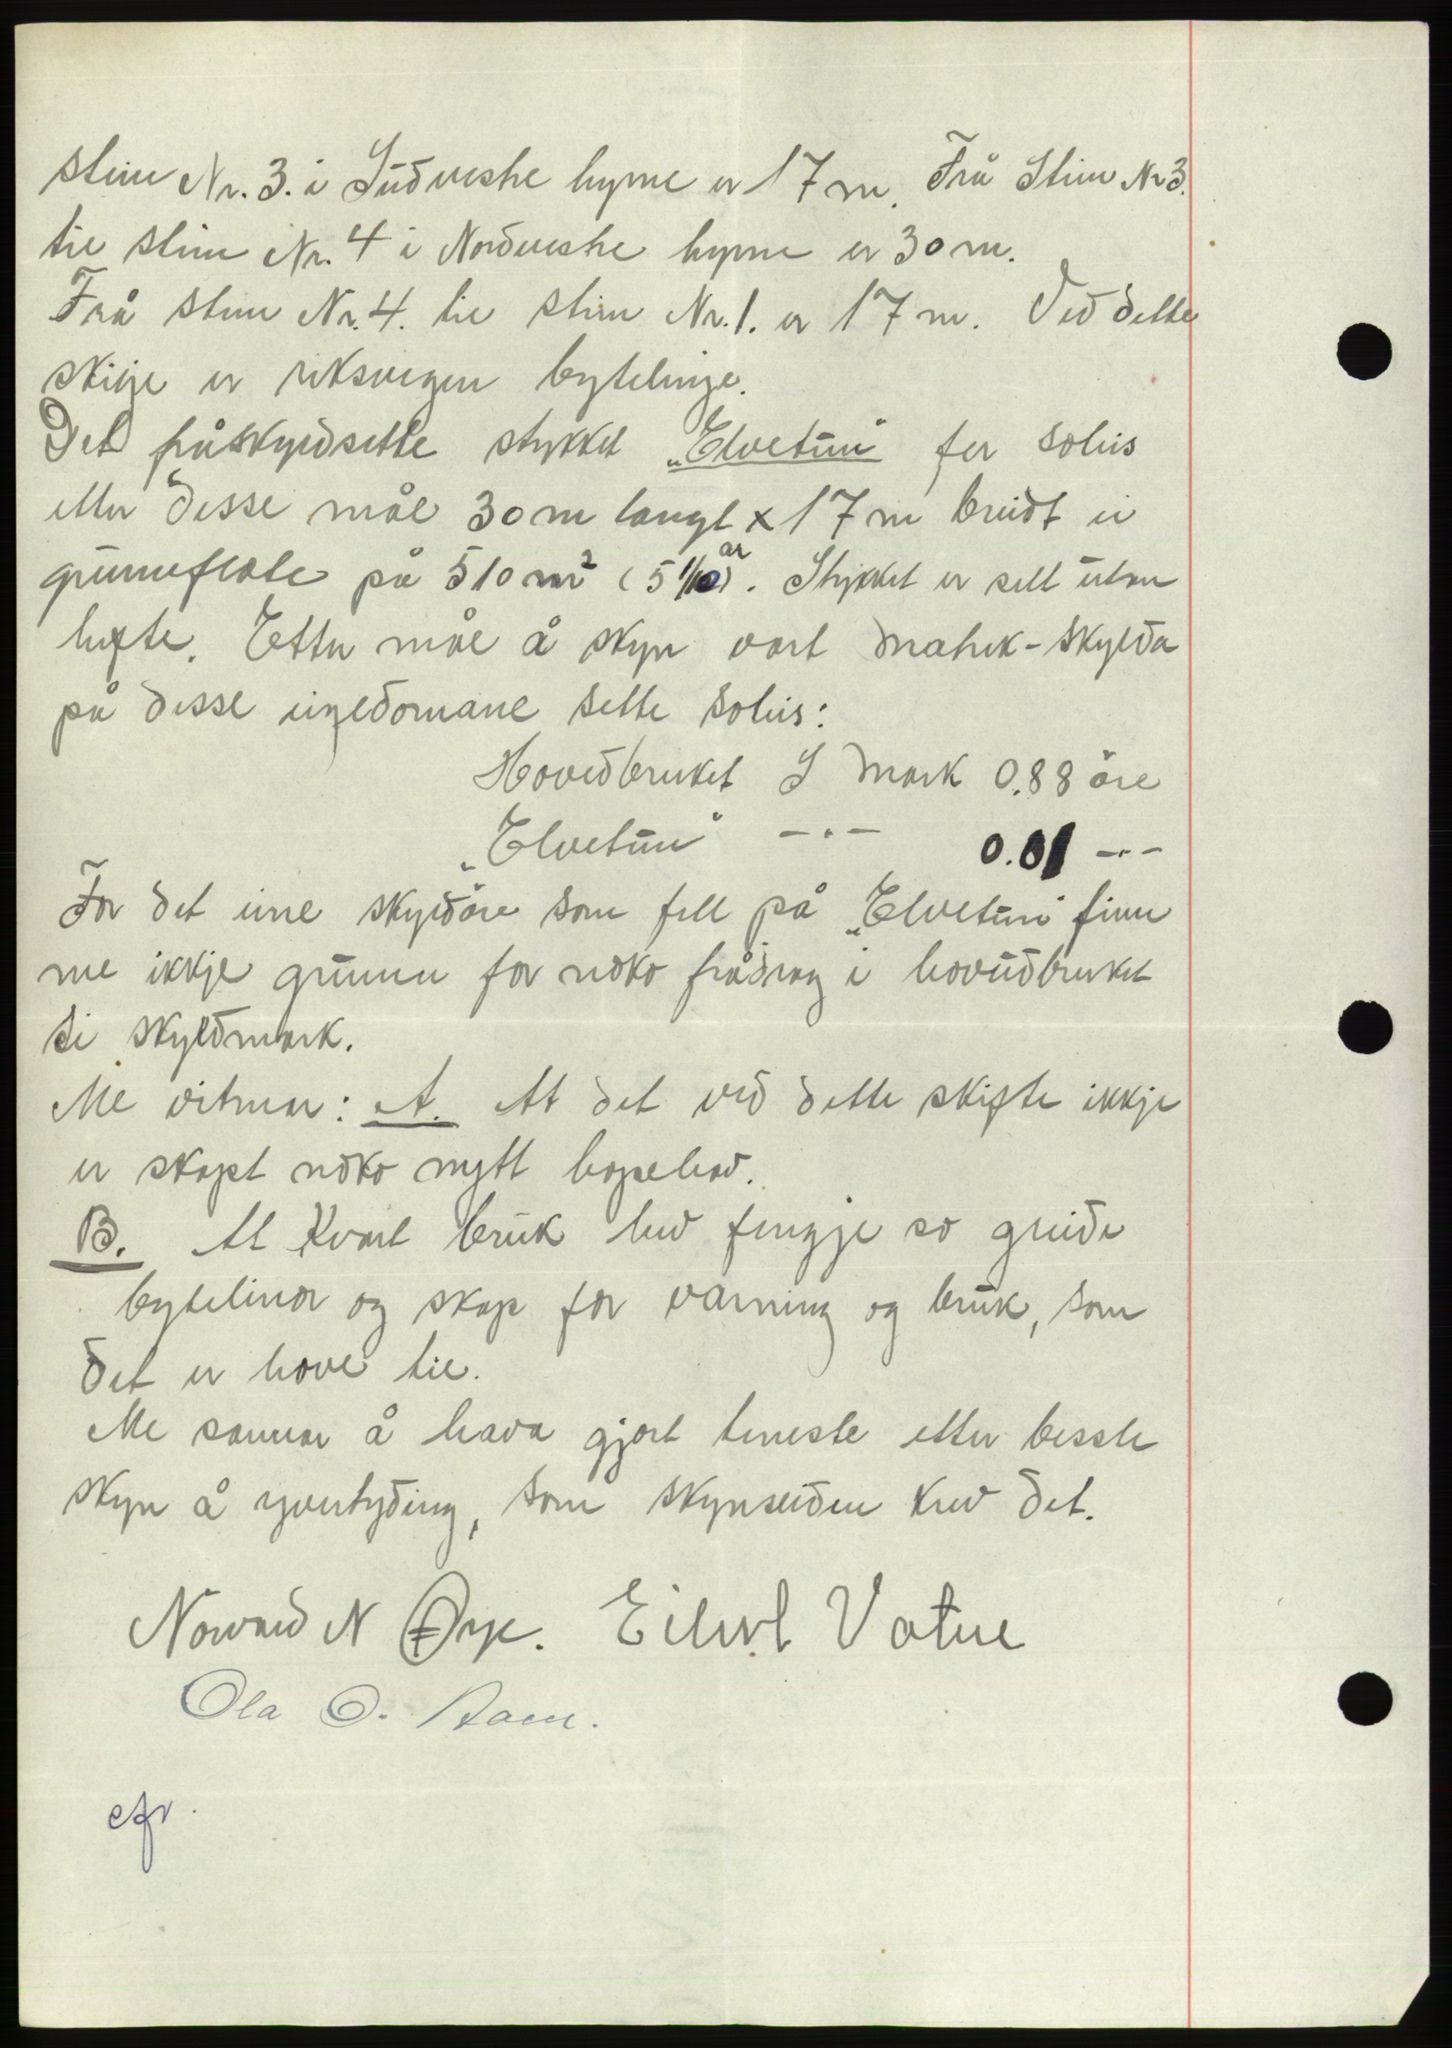 stein Nr. 3. i Sudvestre hyrne er 17 m. Frå Stein Nr 3.
til stein Nr. 4 i Nordvestre hyrne er 30 m.
Frå stein Nr. 4. til stein Nr. 1. er 17 m. Ved dette
skilje er riksvegen bytelinje.
Det fråskyldsette stykket "Elvetun" fer soleis
etter desse mål 30 m langt x 17 m breidt ei
grunnflate på 510 m² (5 1/10 ar). Stykket er selt utan
hefte. Etter mål å skyn vart Matrik-skylda
på desse eigedomane sette soleis:
Hovedbruket I Mark 0.88 öre
"Elvetun" —"— 0.01 —"—
For det eine skyldöre som fell på "Elvetun" finn
me ikkje grunn for noko frådrag i hovudbruket
si skyldmark.
Me vitnar: A. At det ved dette skifte ikkje
er skapt noko nytt hopehav.
B. At kvart bruk hev fengje so greide
bytelinor og skap for varning og bruk, som
det er hove til.
Me sannar å hava gjort teneste etter besste
skyn å yvertyding, som skynseiden krev det.
N Øye. Eilert Vatne
Ola O. Aam.